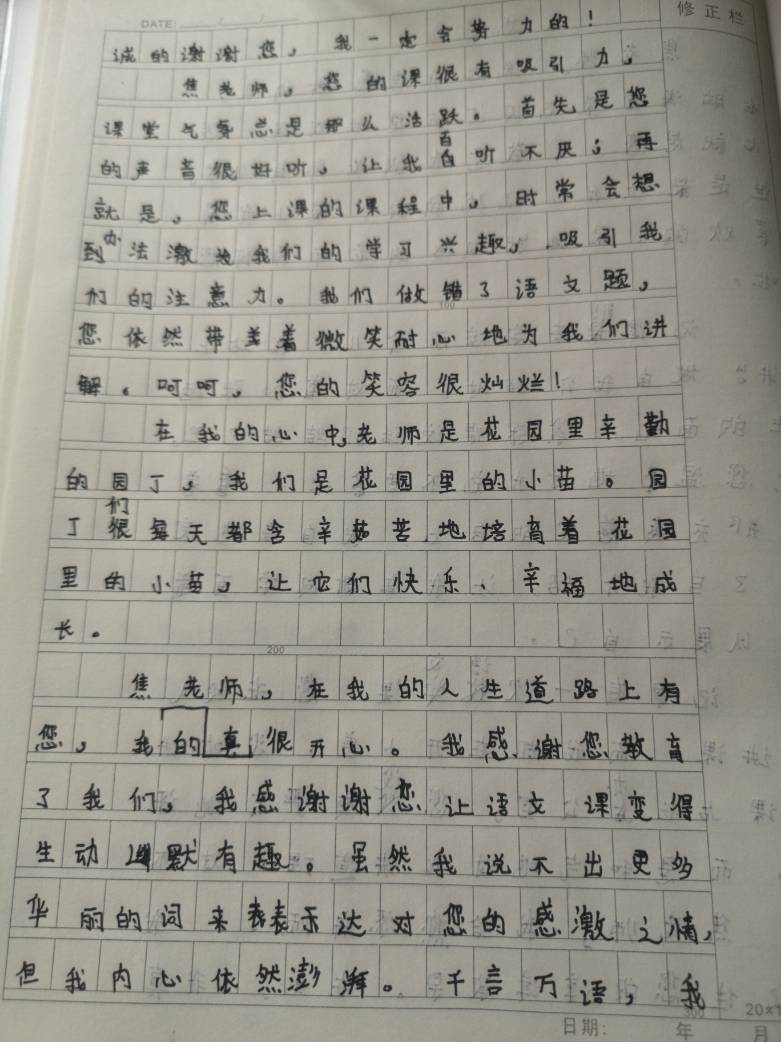 DATE: / /
修正栏
诚的谢谢您，我一定会努力的！
焦老师，您的课很有吸引力，
课堂气氛总是那么活跃。首先是您
的声音很好听，让我百听不厌；再
就是，您上课的课程中，时常会想
到办法激发我们的学习兴趣，吸引我
们的注意力。我们做错了语文题，
100
您依然带着微笑耐心地为我们讲
解。呵呵，您的笑容很灿烂！
在我的心中，老师是花园里辛勤
的园丁，我们是花园里的小苗。园
丁们很每天都含辛茹苦地培育着花园
里的小苗，让它们快乐、幸福地成
长。
200
焦老师，在我的人生道路上有
您，我的真很开心。我感谢您教育
了我们，我感谢谢您让语文课变得
生动幽默有趣。虽然我说不出更多
华丽的词来表示达对您的感激之情，
但我内心依然澎湃。千言万语，我
300
20×1
日期： 年 月